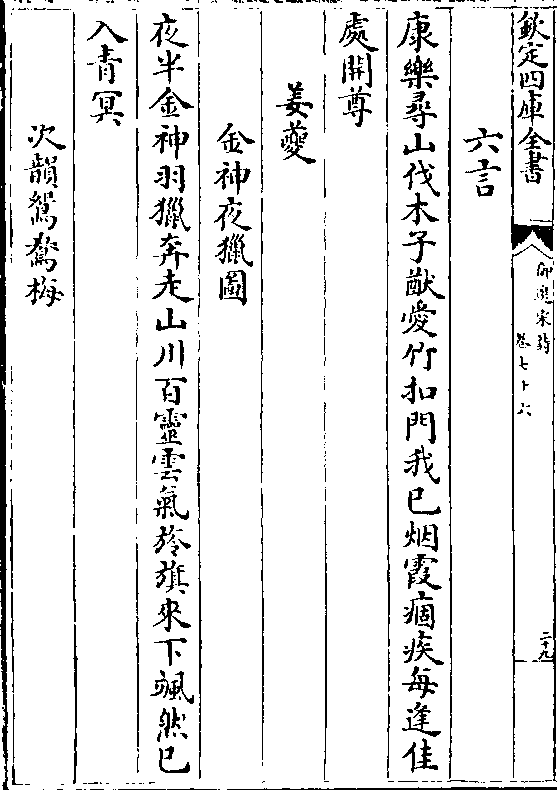 欽定四庫全書
御選宋詩
卷七十六
二十九
六言
康樂尋山伐木子猷愛竹扣門我已烟霞痼疾每逢佳
處開尊
姜夔
金神夜獵圖
夜半金神羽獵奔走山川百靈雲氣旍旗來下颯然已
入青冥
次韻鴛鴦梅